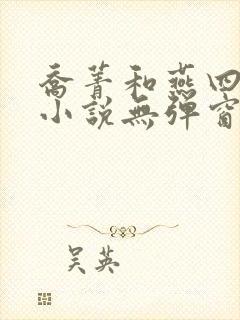 喬菁和燕四
小説無彈窗
吴英